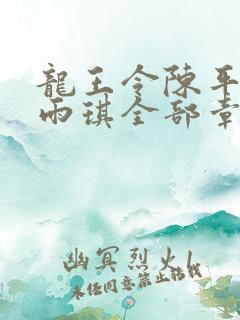 龍王令陳平
雨琪全部章
幽冥烈火1
未经同意禁止转载